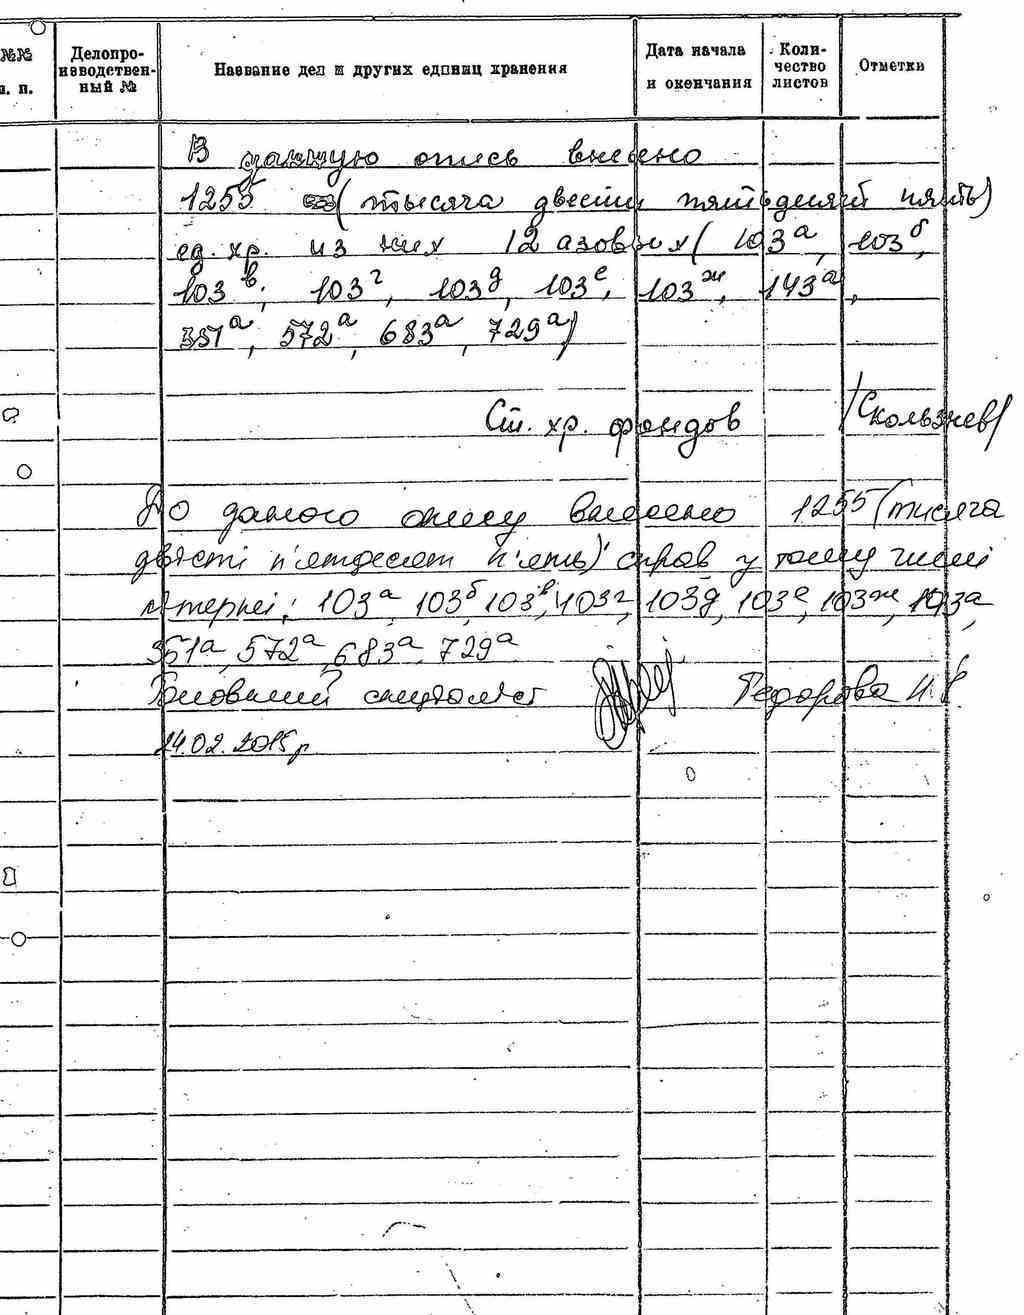 №№ п. п.
Делопроизводственный №
Название дел и других единиц хранения
Дата начала и окончания
Количество листов
Отметки
В данную опись внесено
1255 (тысяча двести пятьдесят пять)
ед. хр. из них 12 азовых (103а, 103б,
103в, 103г, 103д, 103е, 103ж, 143а,
351а, 572а, 683а, 729а)
Ст. хр. фондов
До даного опису внесено 1255 (тисяча
двісті п'ятдесят п'ять) справ у тому числі
літерні: 103а, 103б, 103в, 103г, 103д, 103е, 103ж, 143а,
351а, 572а, 683а, 729а
Головний спеціаліст Федорова
24.02.2015р